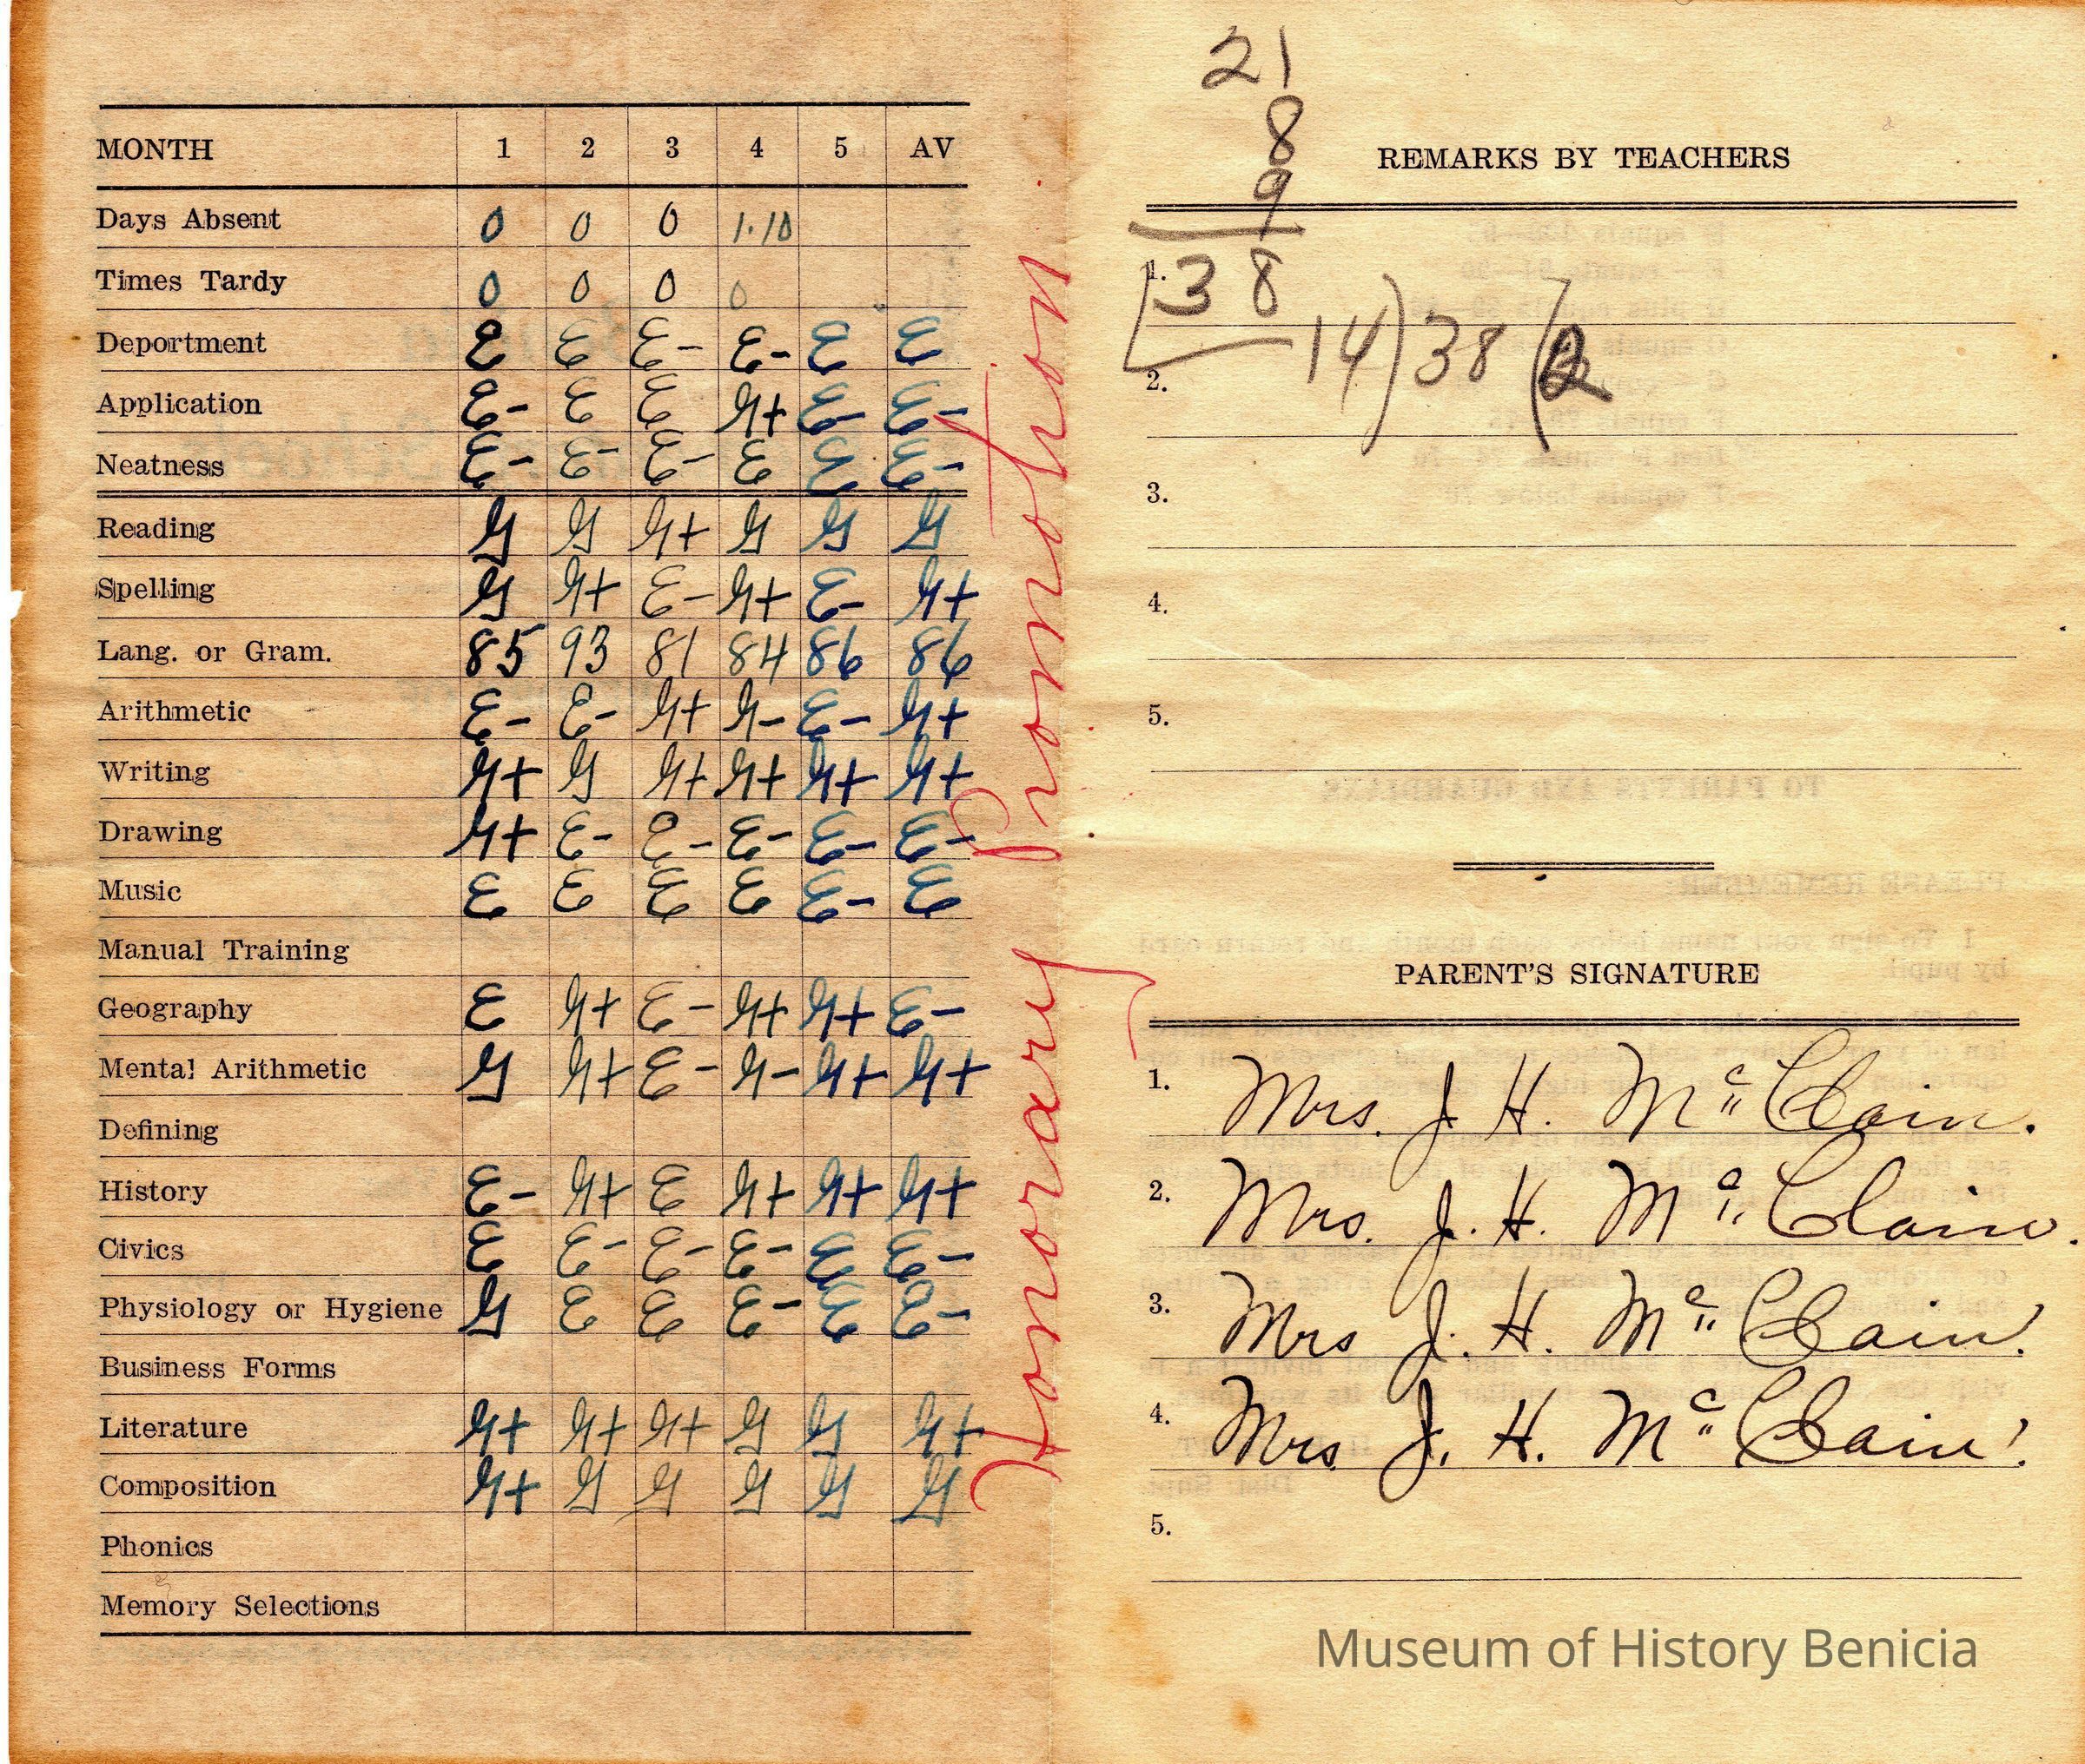 MONTH 1 2 3 4 5 AV
Days Absent 0 0 0 1.10
Times Tardy 0 0 0 0
Deportment E E E- E- E E
Application E- E E G+ E- E-
Neatness E- E- E- E E E-
Reading G G G+ G G G
Spelling G G+ E- G+ E- G+
Lang. or Gram. 85 93 81 84 86 86
Arithmetic E- E- G+ G- E- G+
Writing G+ G G+ G+ G+ G+
Drawing G+ E- E- E- E- E-
Music E E E E E- E
Manual Training
Geography E G+ E- G+ G+ E-
Mental Arithmetic G G+ E- G- G+ G+
Defining
History E- G+ E G+ G+ G+
Civics E E- E- E- E E-
Physiology or Hygiene G E E E- E E-
Business Forms
Literature G+ G+ G+ G G G+
Composition G+ G G G G G
Phonics
Memory Selections
Honorary Promotion.
21
8
9
38
14)38(2
REMARKS BY TEACHERS
1.
2.
3.
4.
5.
PARENT'S SIGNATURE
1. Mrs. J H. McClain.
2. Mrs. J. H. McClain.
3. Mrs J. H. McClain.
4. Mrs J. H. McClain.
5.
Museum of History Benicia